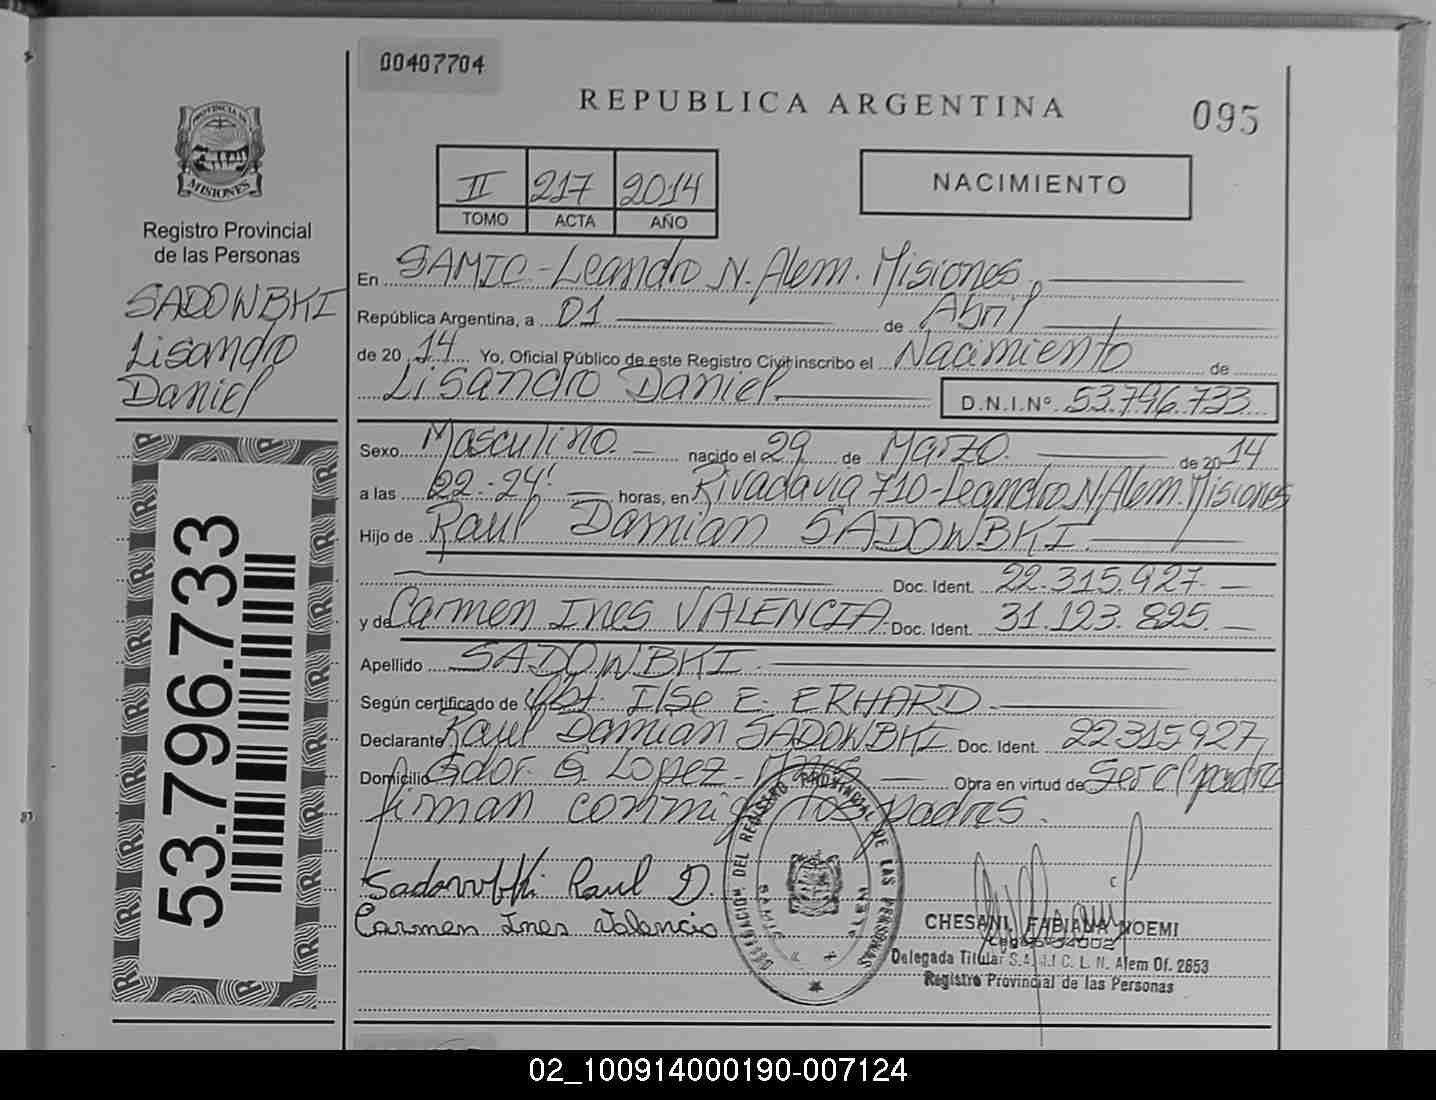 00407704
REPUBLICA ARGENTINA
095
II 217 2014
TOMO ACTA AÑO
NACIMIENTO
PROVINCIA DE
MISIONES
Registro Provincial
de las Personas
SADOWBKI
Lisandro
Daniel
53.796.733
En SAMIC - Leandro N. Alem. Misiones,
República Argentina, a 01 de Abril
de 20 14 Yo, Oficial Público de este Registro Civil inscribo el Nacimiento de
Lisandro Daniel D.N.I.Nº 53.796.733
Sexo Masculino. nacido el 29 de Marzo. de 20 14
a las 22:24' horas, en Rivadavia 710 - Leandro N. Alem. Misiones
Hijo de Raul Damian SADOWBKI.
Doc. Ident. 22.315.927
y de Carmen Ines VALENCIA. Doc. Ident. 31.123.825
Apellido SADOWBKI.
Según certificado de Obst. Ilse E. ERHARD
Declarante Raul Damian SADOWBKI Doc. Ident. 22315927,
Domicilio Gdor. G. Lopez - Obra en virtud de Ser el padre
firman conmigo los padres.
Sadowbki Raul D.
Carmen Ines Valencia
DELEGACION DEL REGISTRO PROVINCIAL DE LAS PERSONAS
SAMIC
CHESANI, FABIANA NOEMI
Delegada Titular S.A.M.I.C. L. N. Alem Of. 2653
Registro Provincial de las Personas
02_100914000190-007124